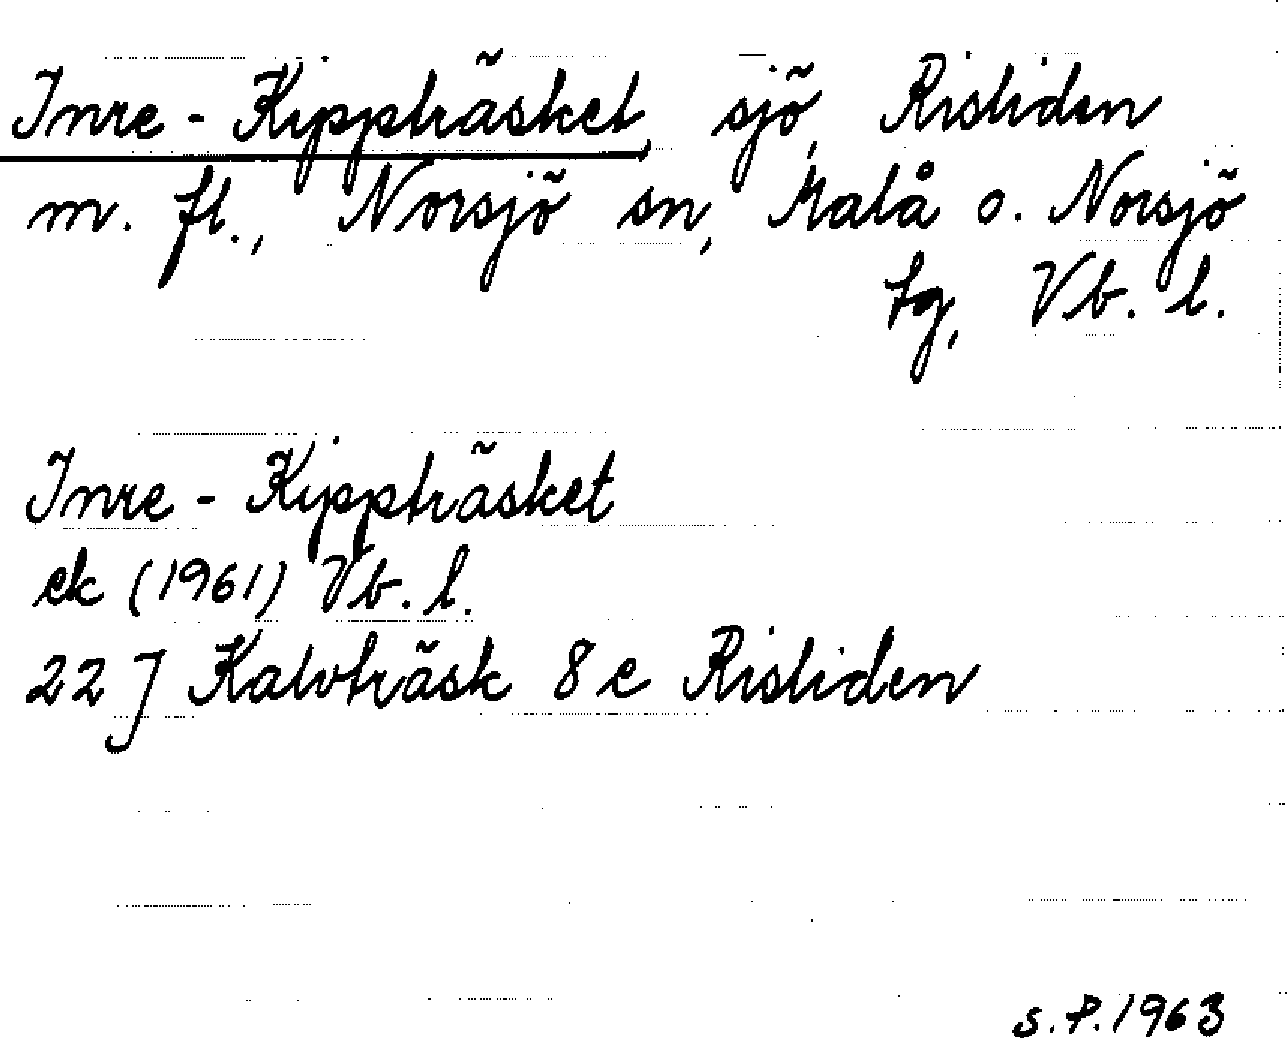 Inre-Kippträsket, sjö, Risliden
m. fl., Norsjö sn, Malå o. Norsjö
tg, Vb. l.
Inre-Kippträsket
ek (1961) Vb. l.
22 J Kalvträsk 8 e Risliden
S.P. 1963